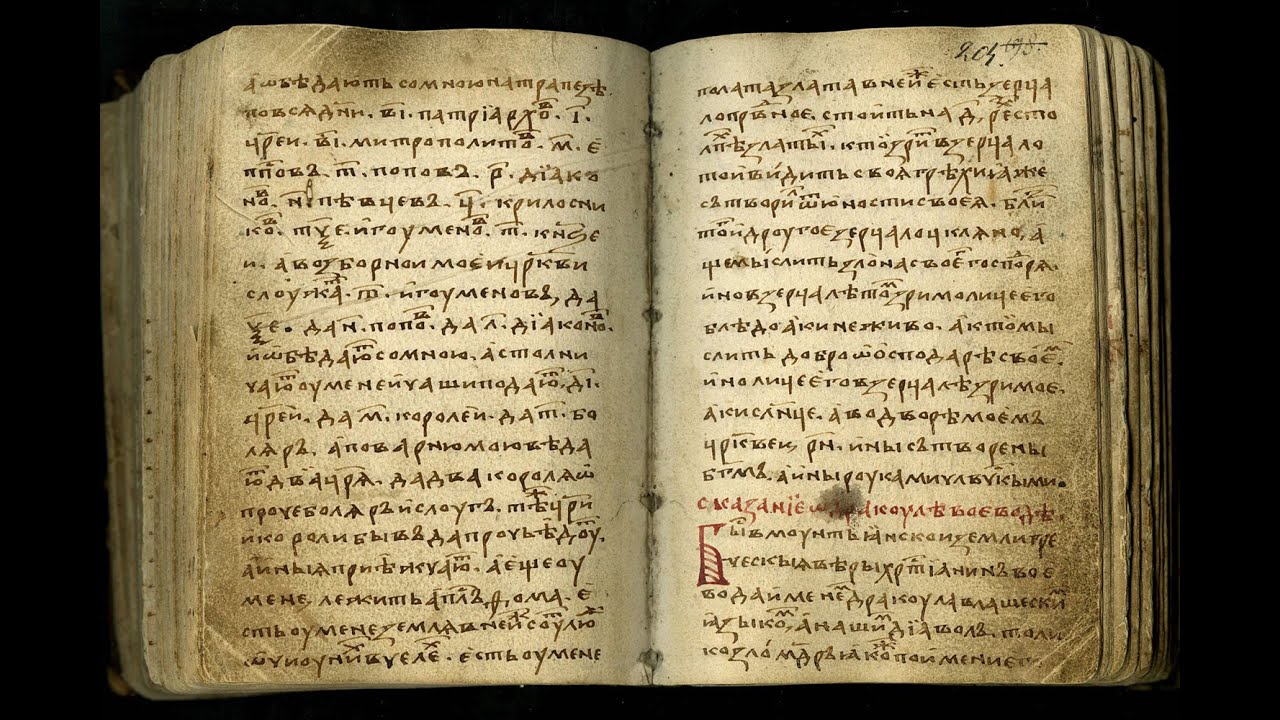 аѡбѣдають сомною натрапезѣ
повсѧдни. в҃і. патріархо́в. і҃.
ч҃рей. в҃і. митрополито́в. м҃. е
пп҃овъ. т҃. поповъ. р҃. дїако
но́в. н҃. пѣвчевъ. ч҃. крилосни
ко́в. игоумено́в. т҃. кн҃зе
и. авозборнои моеи ц҃ркви
слоужат. игоуменовъ, да
да н҃. попо́в. да л҃. дїаконо́в.
иѡбѣдают сомною. астолни
чают оуменѧ ичашиподают, д҃і.
ч҃рей. да м҃. королей. да т҃. бо
лѧръ. аповарнюмою вѣда
ют два ч҃рѧ. дадва королѧ ѡ
прочеболѧръ ислоугъ. тѣ ч҃ри
икороли бывъ дапрочь ѣдоу.
аиныѧ приѣжчают. аеще оу
мене лежить ап҃лъ ѳома. е
сть оуменѧ землѧ внеи соут лю
ѡчи оуних вчелѣ. есть оумене
204
полата злата внейж есть зерца
ло правное. стоить на д҃, ресто
лпѣх златых. кто зрит взерцало
тои видить своѧ грѣхи ꙗже
сътворил ѿ юности своеѧ. близ
той дроугое зерцало цклѧно, а
ще мыслить зло на своег господрѧ.
ино взерцалѣ том зримо лице его
блѣдо аки не живо. а кто мы
слить добро ѡ осподарѣ своем.
ино лице его взерцалѣ зримое.
аки сл҃нце. а водворѣ моемъ
ц҃рквеи, рн҃. ины сътворены
б҃гмъ. а ины роуками чл҃вчкыми.
сказаніе ѡ дракоулѣ воеводѣ.
Бы́с вмоунтьанскои земли гре
ческыѧ вѣры хр҃тіанинъ вое
вода именем дракоула влашеским
ꙗзыком, а нашим дїаволъ. толи
ко зломудръ ꙗкож по имени ег